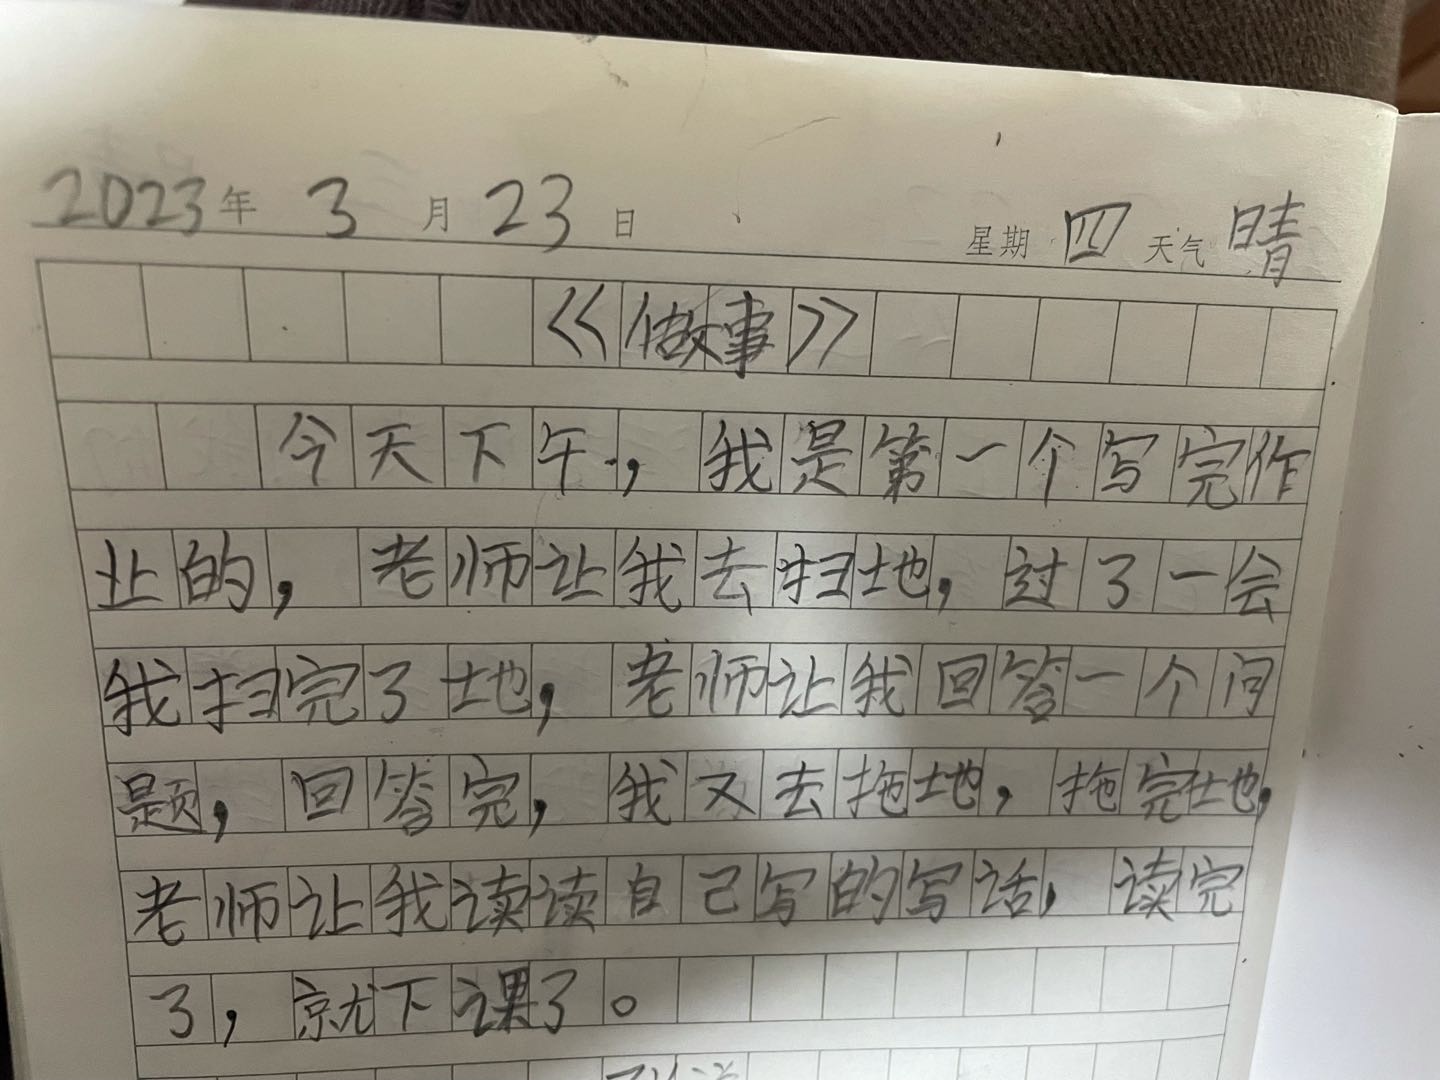 2023年 3月 23日 星期 四 天气 晴
《做事》
今天下午,我是第一个写完作
业的,老师让我去扫地,过了一会
我扫完了地,老师让我回答一个问
题,回答完,我又去拖地,拖完地,
老师让我读读自己写的写话,读完
了,就下课了。